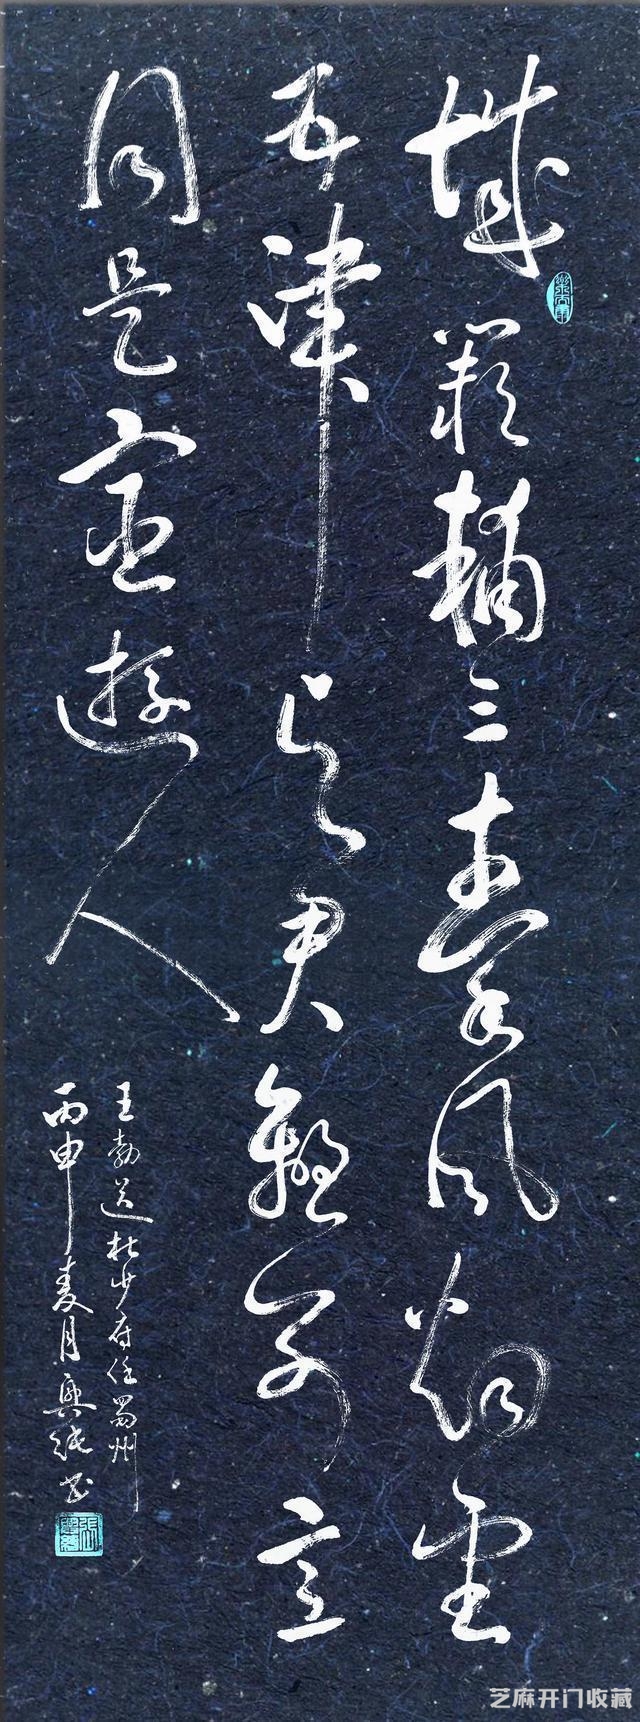 城阙辅三秦风烟望
五津与君离别意
同是宦遊人
王勃送杜少府任蜀州
丙申夏月兴纯书
芝麻开门收藏